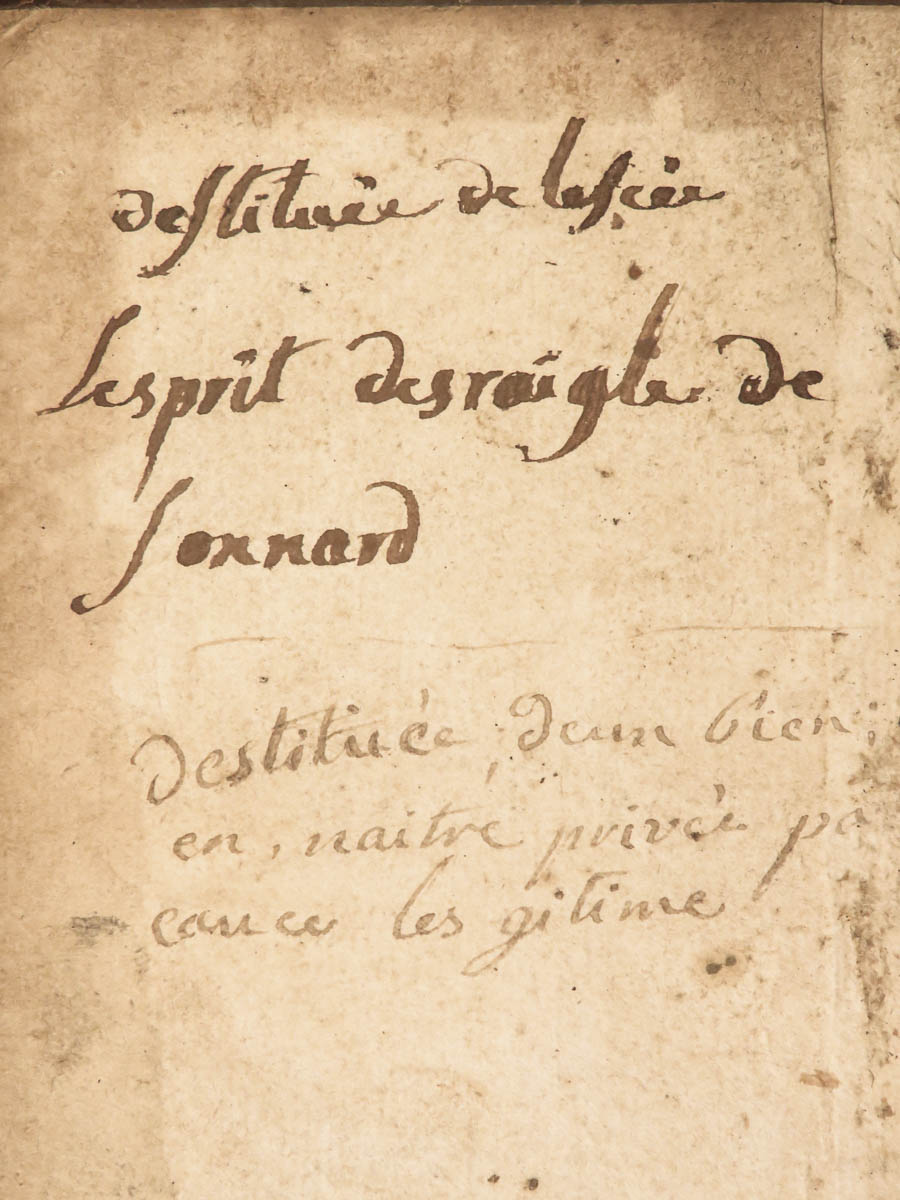 destituée de
Lesprit desraigle de
Sonnard
destituée deun bien;
en, naitre privée pa
cauce les gitime